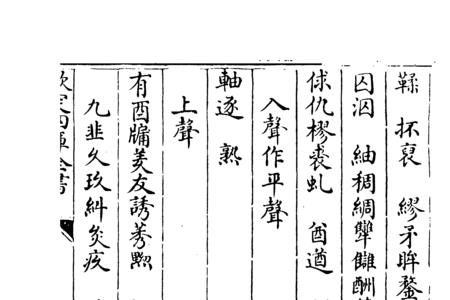 鞣 抔裒 繆矛眸鍪
囚泅 紬稠綢犫讎酬
俅仇樛裘虬 酋遒
入聲作平聲
軸逐 熟
上聲
有酉牖羑友誘莠黝
九韭久玖糾灸疚
欽定四庫全書